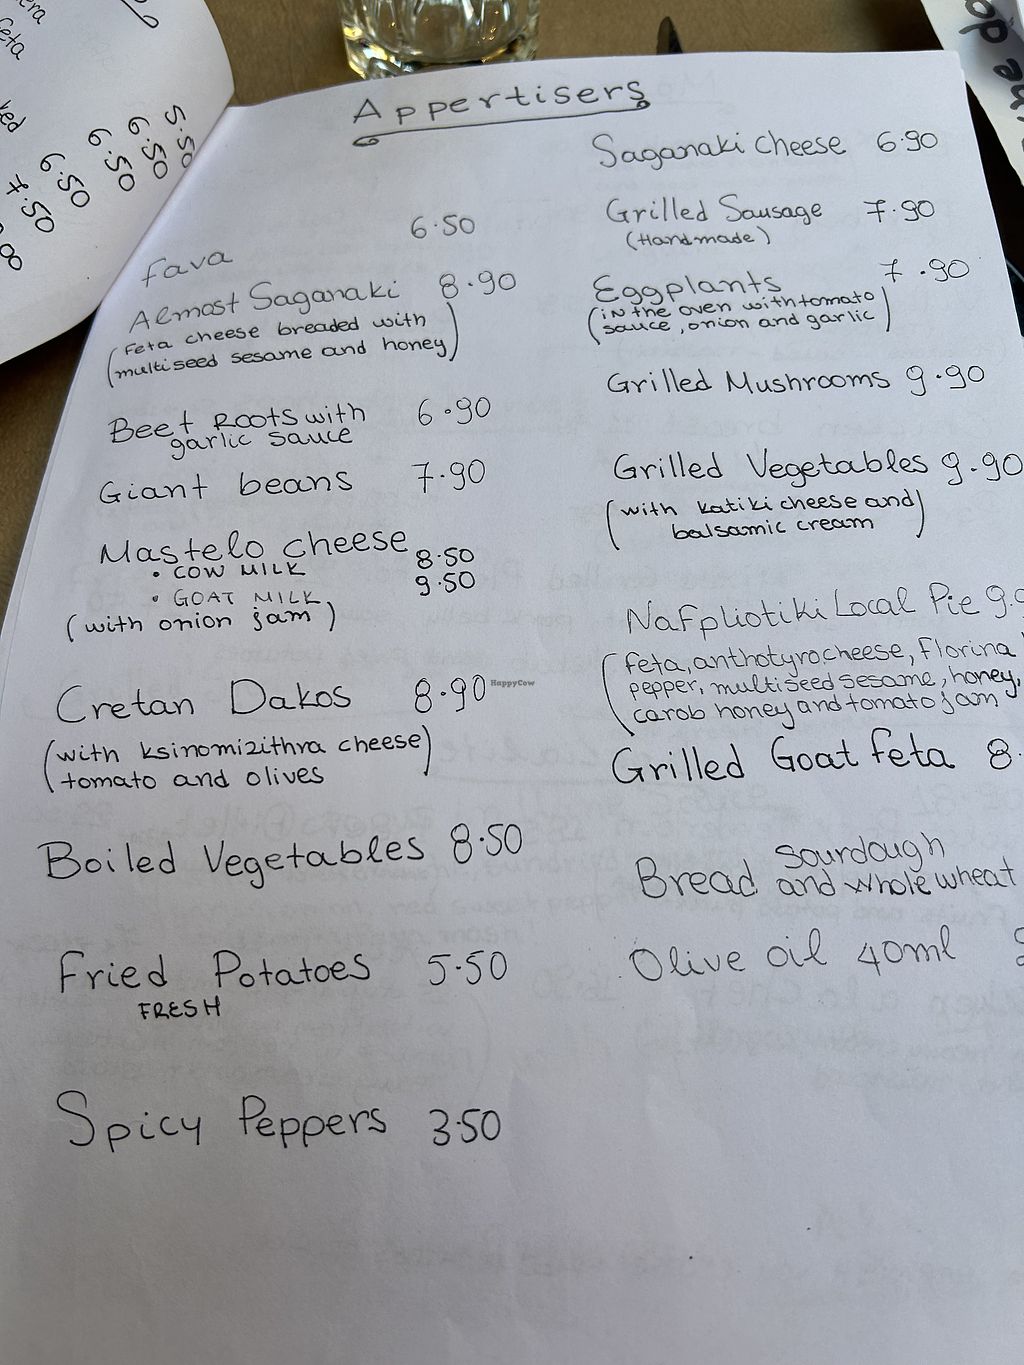 Appertisers
Fava 6.50
Almost Saganaki 8.90
(Feta cheese breaded with
multiseed sesame and honey)
Beet Roots with 6.90
garlic sauce
Giant beans 7.90
Mastelo cheese
• COW MILK 8.50
• GOAT MILK 9.50
(with onion jam)
Cretan Dakos 8.90
(with ksinomizithra cheese
tomato and olives)
Boiled Vegetables 8.50
Fried Potatoes 5.50
FRESH
Spicy Peppers 3.50
Saganaki cheese 6.90
Grilled Sausage 7.90
(Handmade)
Eggplants 7.90
(in the oven with tomato
sauce, onion and garlic)
Grilled Mushrooms 9.90
Grilled Vegetables 9.90
(with katiki cheese and
balsamic cream)
Nafpliotiki Local Pie 9.
(feta, anthotyrocheese, Florina
pepper, multiseed sesame, honey,
carob honey and tomato jam
Grilled Goat feta 8.
Sourdough
Bread and whole wheat
Olive oil 40ml
5.50
6.50
6.50
6.50
7.50
HappyCow